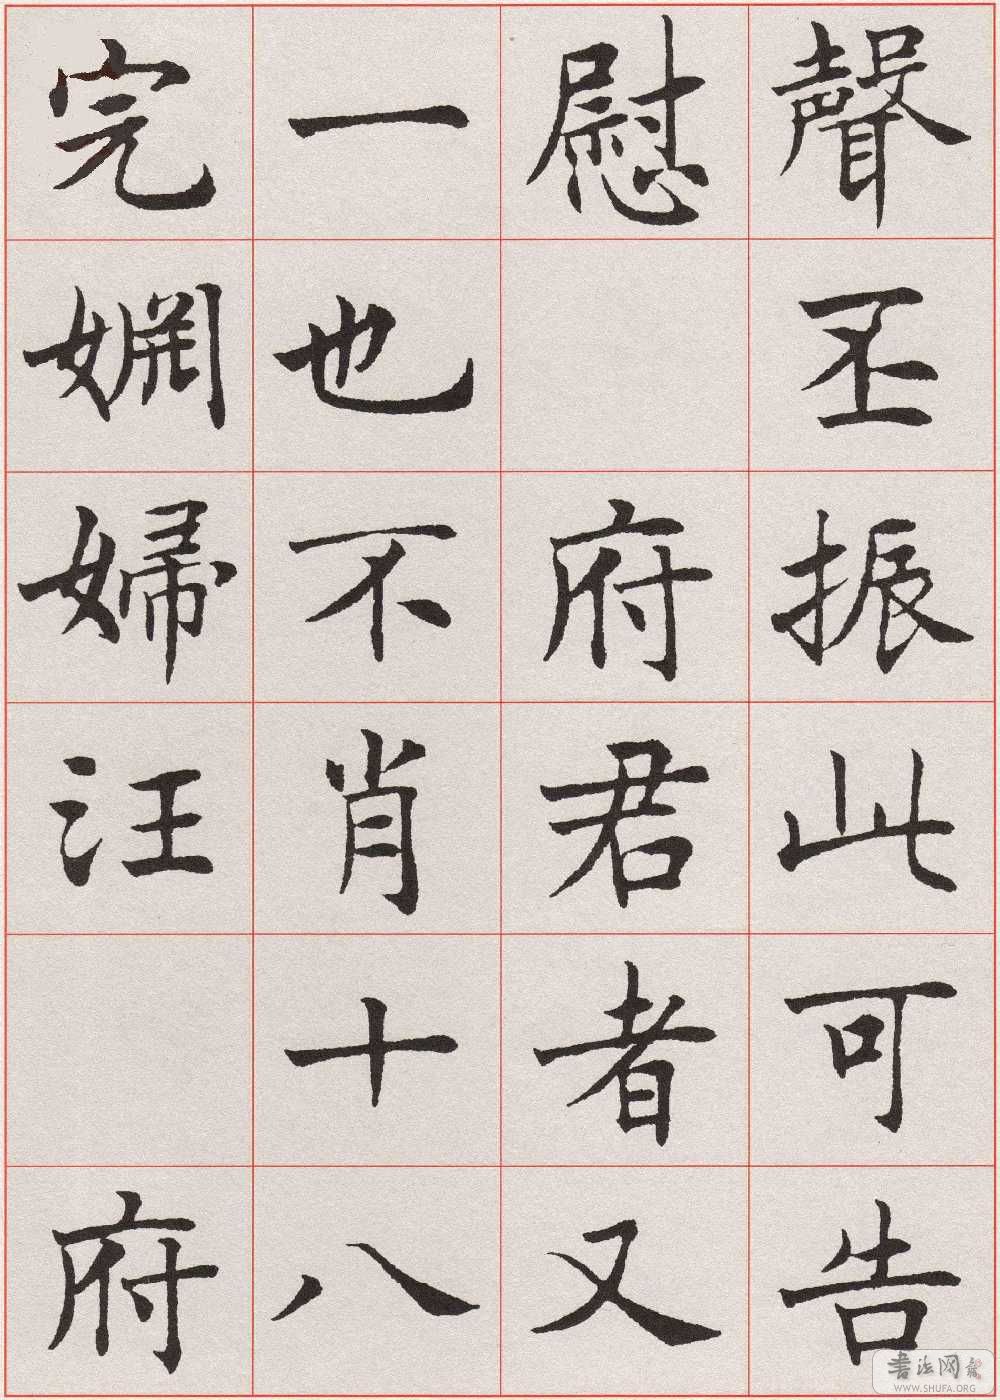 聲丕振此可告
慰 府君者又
一也不肖十八
完婣婦汪 府
書法网
WWW.SHUFA.ORG